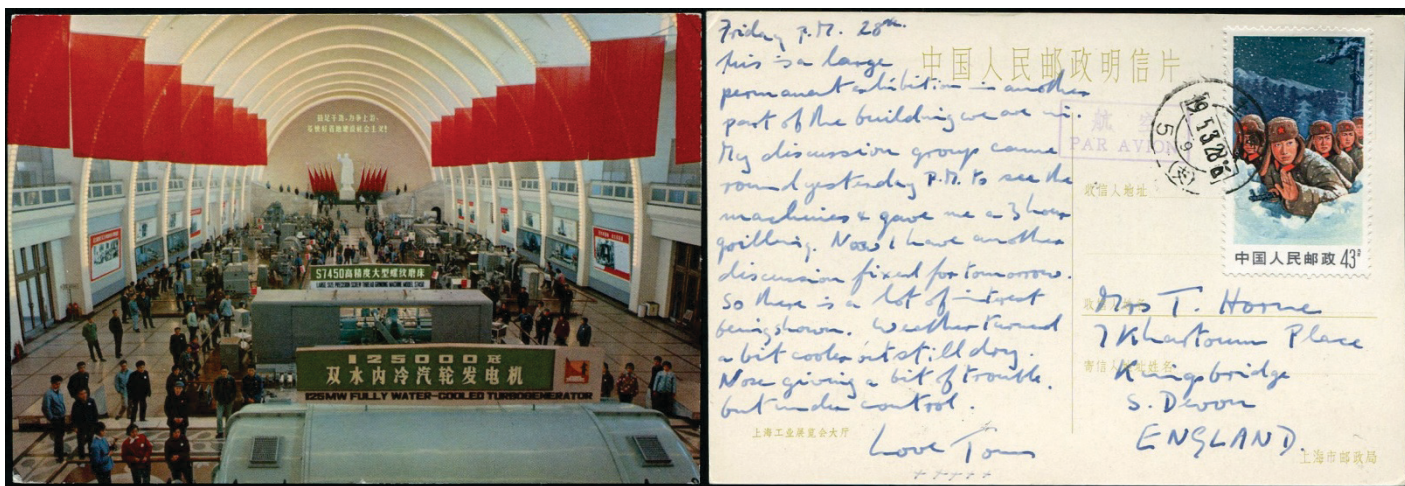 鼓足干劲,力争上游,
多快好省地建设社会主义!
S7450高精度大型螺纹磨床
125000瓩
双水内冷汽轮发电机
125MW FULLY WATER-COOLED TURBOGENERATOR
Friday P.M. 28th.
This is a large
permanent exhibition in another
part of the building we are in.
My discussion group came
round yesterday P.M. to see the
machines & gave me a 3 hour
grilling. Now I have another
discussion fixed for tomorrow.
So there is a lot of interest
being shown. Weather turned
a bit cooler but still dry.
Nose giving a bit of trouble.
but under control.
Love Tom
++++++
上海工业展览会大厅
中国人民邮政明信片
航空
PAR AVION
收信人地址
中国人民邮政 43
Mrs T. Horne
7 Khartoum Place
寄信人地址姓名
Kingsbridge
S. Devon
ENGLAND.
上海市邮政局